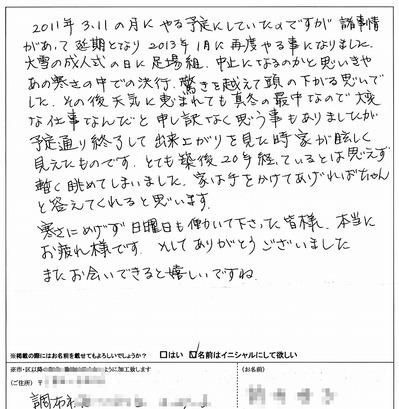 2011年 3.11の月に やる予定にしていたのですが 諸事情
があって延期となり 2013年1月に再度やる事になりました。
大雪の成人式の日に足場組。中止になるのかと思いきや
あの寒さの中での決行。驚きを越えて頭の下がる思いで
した。その後天気に恵まれても真冬の最中なので大変
な仕事なんだと申し訳なく思う事もありましたが
予定通り終了して出来上がりを見た時家が眩しく
見えたものです。とても築後20年経っているとは思えず
暫く眺めてしまいました。家は手をかけてあげればちゃん
と答えてくれると思います。
寒さにめげず 日曜日も働いて下さった皆様、本当に
お疲れ様です。そしてありがとうございました
またお会いできると嬉しいですね。
※掲載の際にはお名前を載せてもよろしいでしょうか? □はい ☑名前はイニシャルにして欲しい
(ご住所) 〒
(お名前)
調布